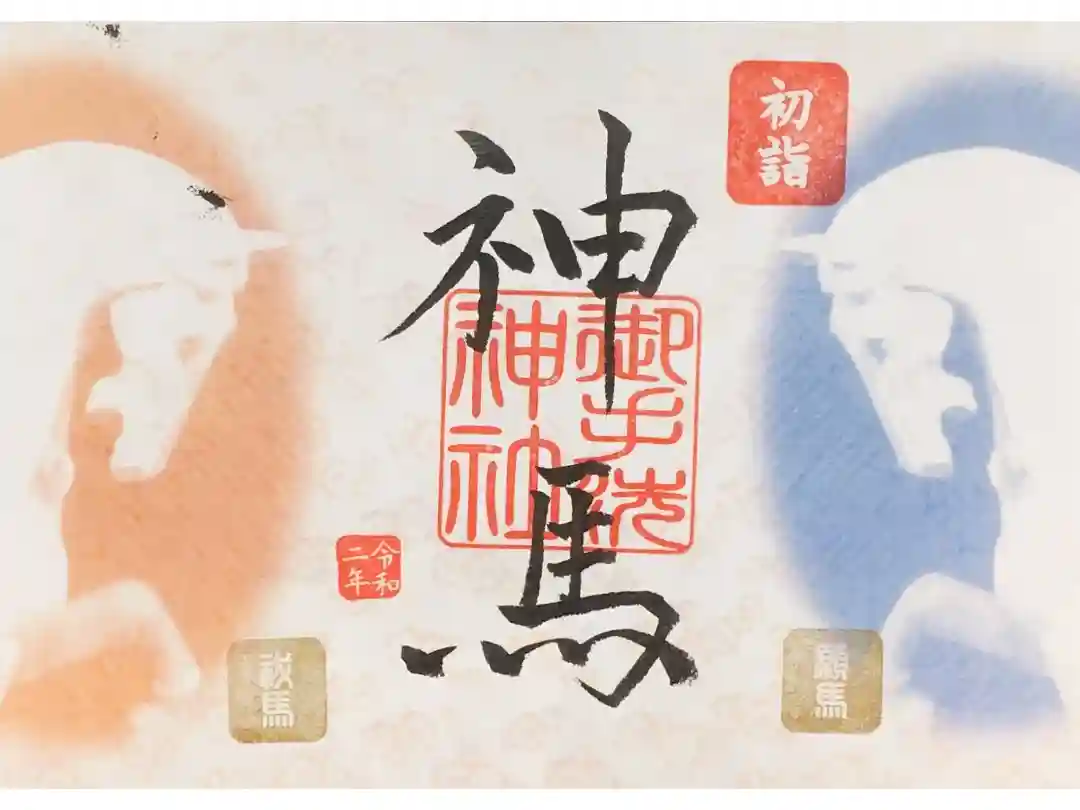 初詣
神馬
御手洗
神社
令和
二年
願馬
祓馬